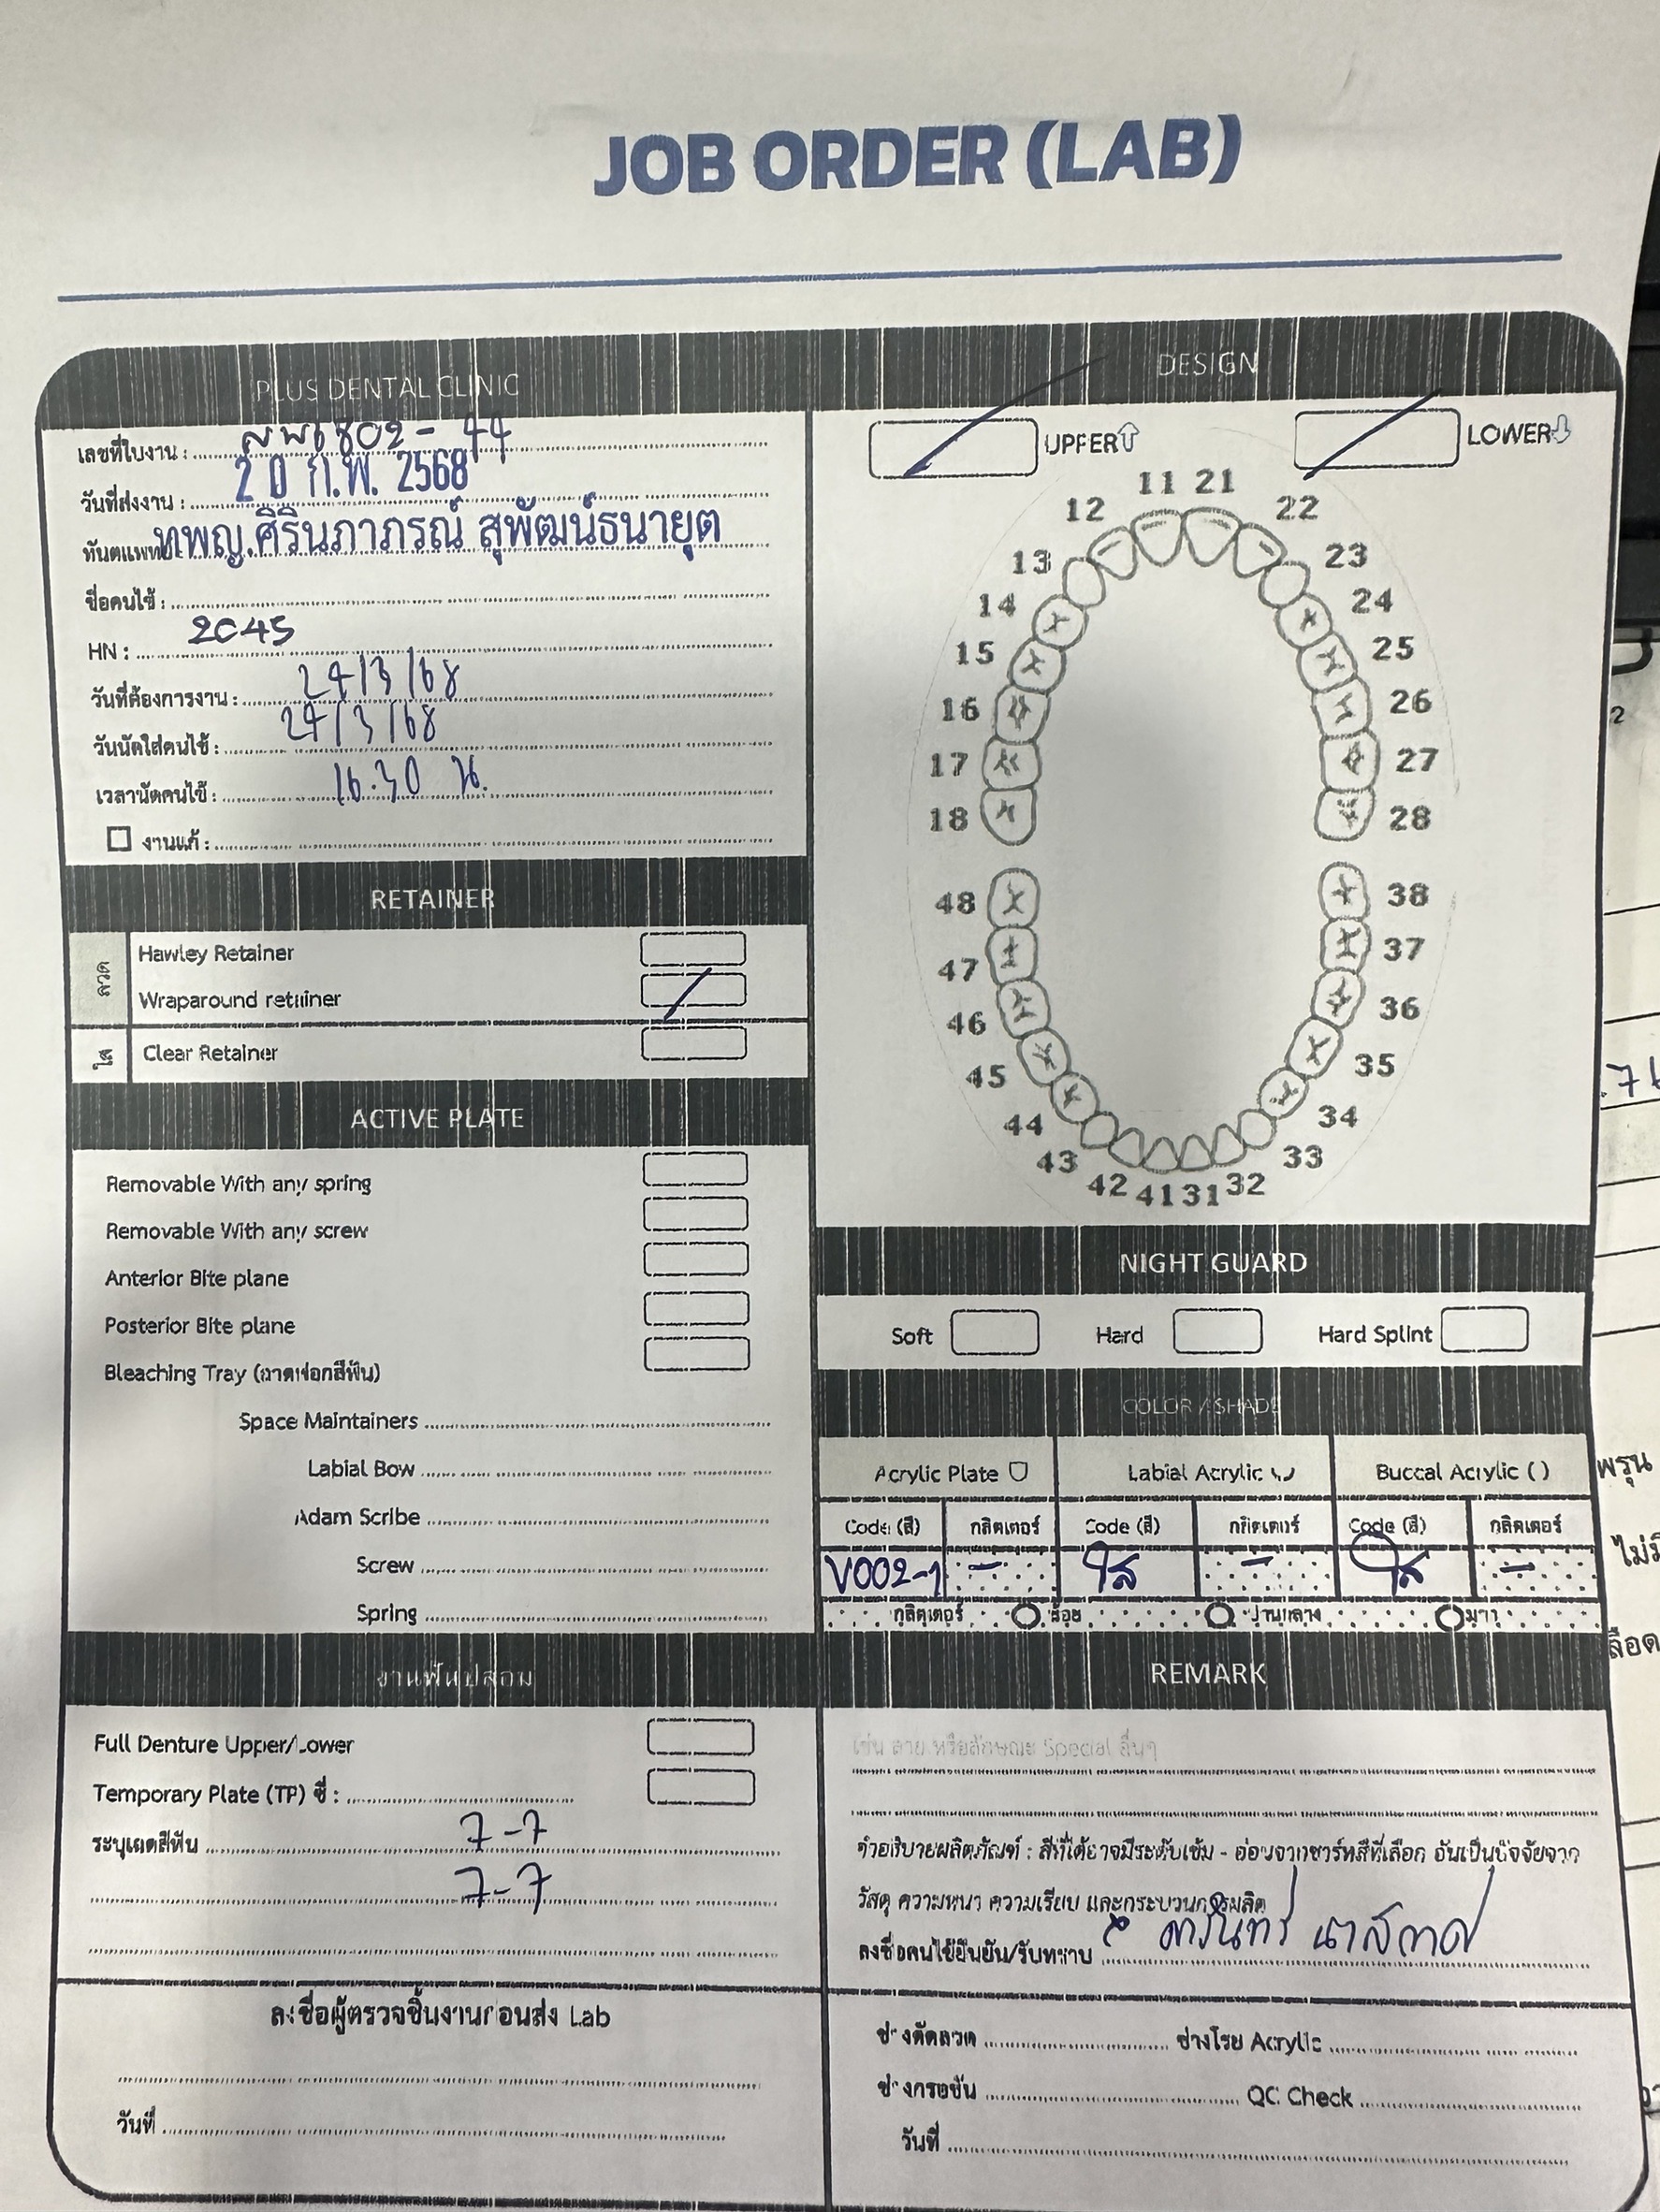 JOB ORDER (LAB)
PLUS DENTAL CLINIC
เลขที่ใบงาน : 6802-44
วันที่ส่งงาน : 20 ก.พ. 2568
ทันตแพทย์ ทพญ.ศิรินภาภรณ์ สุพัฒน์ธนายุต
ชื่อคนไข้ :
HN : 2045
วันที่ต้องการงาน : 24/3/68
วันนัดใส่คนไข้ : 24/3/68
เวลานัดคนไข้ : 16.30 น.
งานแก้ :
RETAINER
ลวด
Hawley Retainer
Wraparound retainer
ใส
Clear Retainer
ACTIVE PLATE
Removable With any spring
Removable With any screw
Anterior Bite plane
Posterior Bite plane
Bleaching Tray (ถาดฟอกสีฟัน)
Space Maintainers
Labial Bow
Adam Scribe
Screw
Spring
งานฟันปลอม
Full Denture Upper/Lower
Temporary Plate (TP) ซี่ :
ระบุเฉดสีฟัน 7-7
7-7
ลงชื่อผู้ตรวจชิ้นงานก่อนส่ง Lab
วันที่
DESIGN
UPPER LOWER
11 21
12 22
13 23
14 24
15 25
16 26
17 27
18 28
48 38
47 37
46 36
45 35
44 34
43 33
42 41 31 32
NIGHT GUARD
Soft Hard Hard Splint
COLOR / SHADE
Acrylic Plate Labial Acrylic Buccal Acrylic ( )
Code (สี) กลิตเตอร์ Code (สี) กลิตเตอร์ Code (สี) กลิตเตอร์
V002-1 - ใส - ใส -
กลิตเตอร์ น้อย ปานกลาง มาก
REMARK
เช่น ลาย หรือลักษณะ Special อื่นๆ
คำอธิบายผลิตภัณฑ์ : สีที่ได้อาจมีระดับเข้ม - อ่อนจากชาร์ทสีที่เลือก อันเป็นปัจจัยจาก
วัสดุ ความหนา ความเรียบ และกระบวนการผลิต
ลงชื่อคนไข้ยืนยัน/รับทราบ
ช่างดัดลวด ช่างโรย Acrylic
ช่างกรอขัน QC Check
วันที่